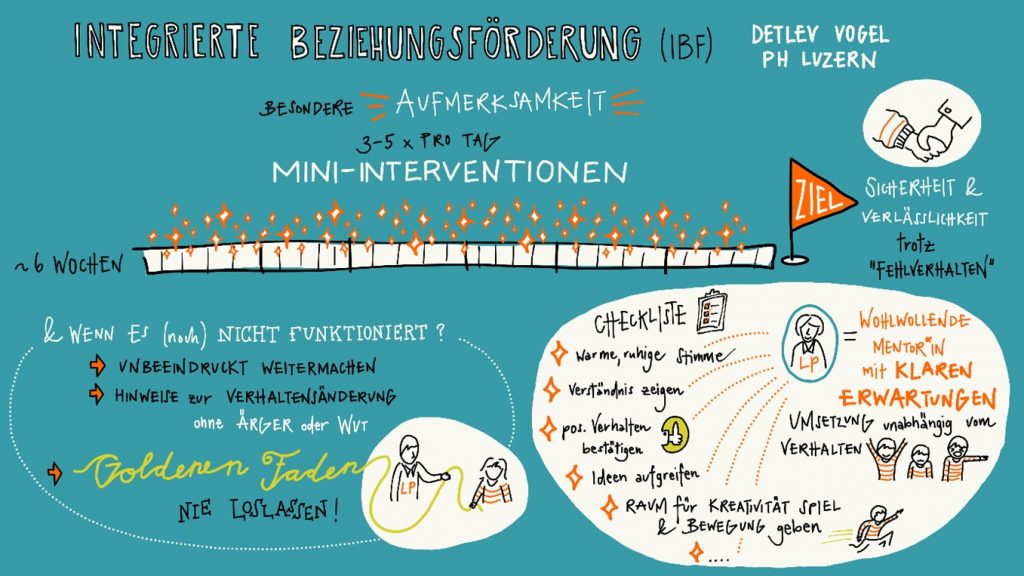 INTEGRIERTE BEZIEHUNGSFÖRDERUNG (IBF)
DETLEV VOGEL
PH LUZERN
BESONDERE AUFMERKSAMKEIT
3-5 x PRO TAG
MINI-INTERVENTIONEN
~6 WOCHEN
ZIEL
SICHERHEIT &
VERLÄSSLICHKEIT
trotz
"FEHLVERHALTEN"
& WENN ES (noch) NICHT FUNKTIONIERT?
UNBEEINDRUCKT WEITERMACHEN
HINWEISE zur VERHALTENSÄNDERUNG
ohne ÄRGER oder WUT
Goldenen Faden
NIE LOSLASSEN!
LP
CHECKLISTE
Warme, ruhige Stimme
Verständnis zeigen
pos. Verhalten
bestätigen
Ideen aufgreifen
RAUM für KREATIVITÄT SPIEL
& BEWEGUNG geben
....
LP
= WOHLWOLLENDE
MENTOR*IN
mit KLAREN
ERWARTUNGEN
UMSETZUNG unabhängig vom
VERHALTEN